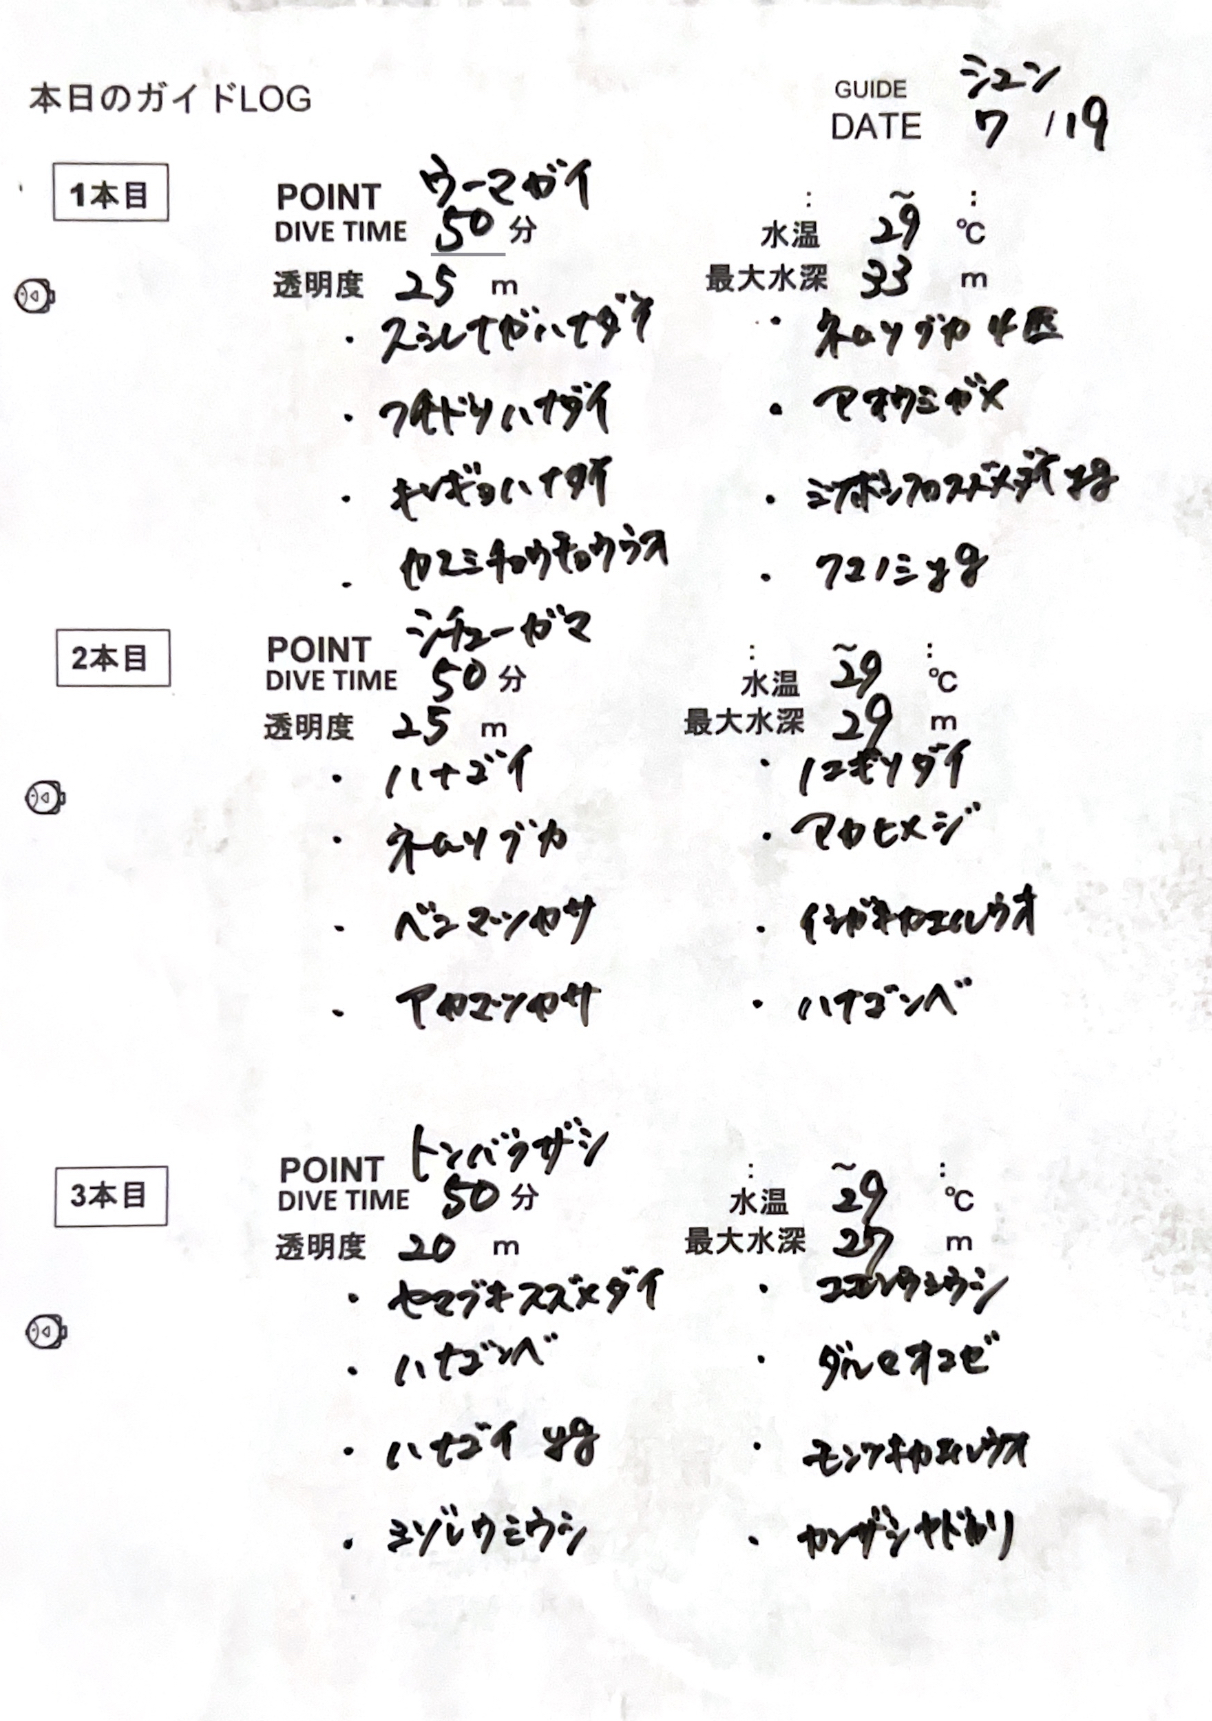 本日のガイドLOG
GUIDE シュン
DATE 7 /19
1本目
POINT ウーマガイ
: ~ :
DIVE TIME 50 分 水温 29 ℃
透明度 25 m 最大水深 33 m
・スミレナガハナダイ ・ネムリブカ 4匹
・フチドリハナダイ ・アオウミガメ
・キンギョハナダイ ・ミツボシクロスズメダイ yg
・カスミチョウチョウウオ ・フエノミ yg
2本目
POINT シチューガマ
: ~ :
DIVE TIME 50 分 水温 29 ℃
透明度 25 m 最大水深 29 m
・ハナゴイ ・ノコギリダイ
・ネムリブカ ・アカヒメジ
・ベニマツカサ ・イシガキカエルウオ
・アカマツカサ ・ハナゴンベ
3本目
POINT トンバラザシ
: ~ :
DIVE TIME 50 分 水温 29 ℃
透明度 20 m 最大水深 27 m
・セマブキスズメダイ ・コモンウミウシ
・ハナゴンベ ・ダルマオコゼ
・ハナゴイ yg ・モンツキカエルウオ
・ミゾレウミウシ ・カンザシヤドカリ